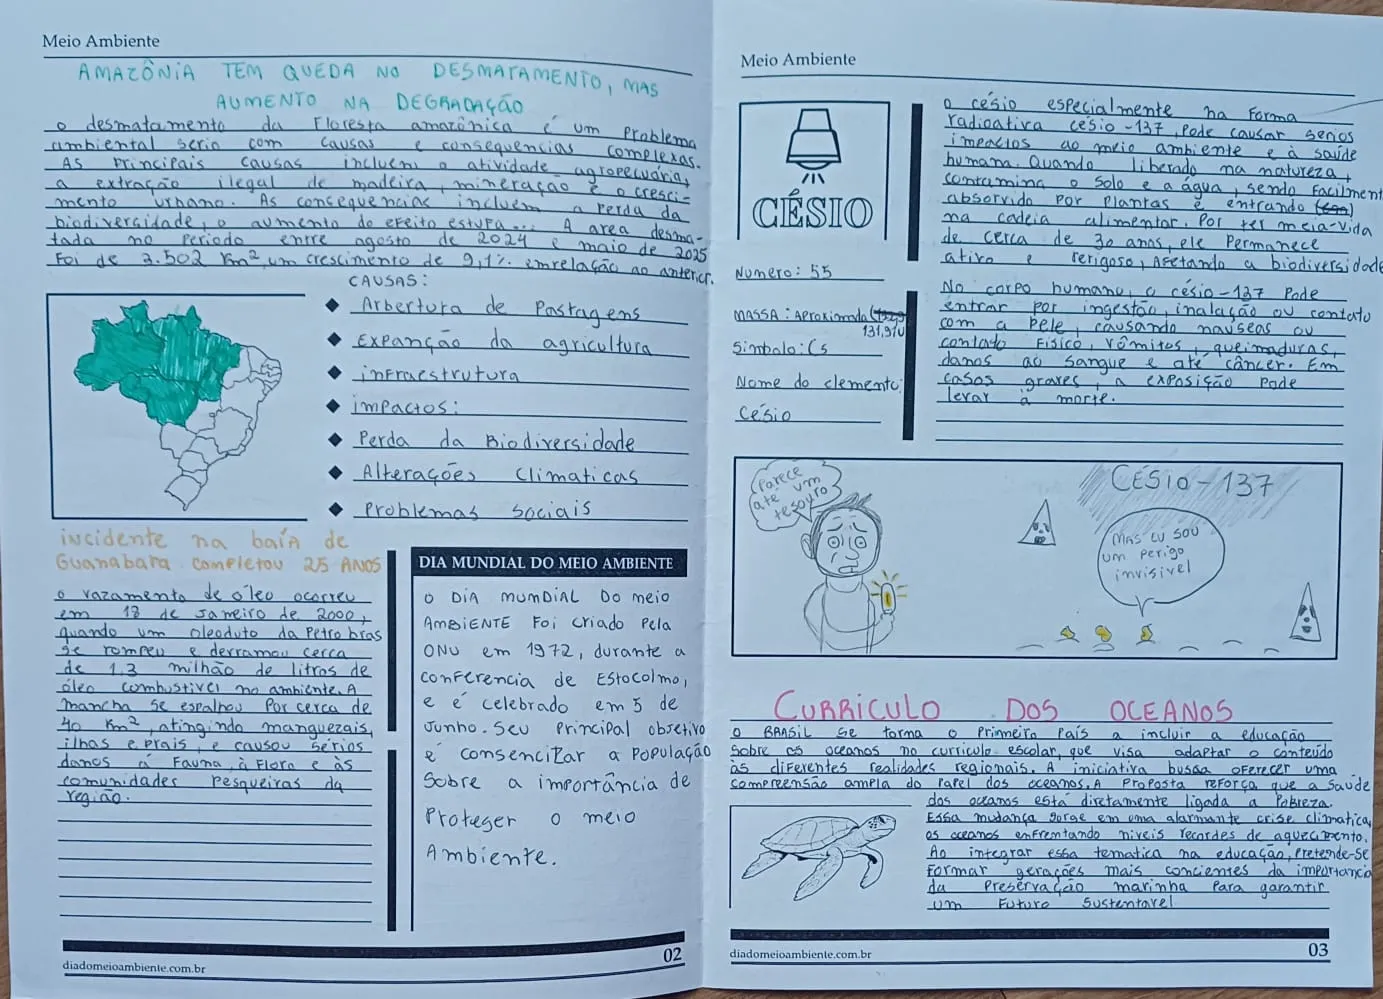 Meio Ambiente
AMAZÔNIA TEM QUEDA NO DESMATAMENTO, MAS
AUMENTO NA DEGRADAÇÃO
o desmatamento da Floresta amazônica é um Problema
ambiental serio com causas e consequências complexas.
As Principais causas incluem a atividade agropecuária,
a extração ilegal de madeira, mineração e o cresci-
mento urbano. As consequências incluem a perda da
biodiversidade, o aumento do efeito estufa... A area desma-
tada no Periodo entre agosto de 2024 e maio de 2025
Foi de 3.502 Km², um crescimento de 9,1% emrelação ao anterior.
CAUSAS:
Arbertura de Pastagens
Expanção da agricultura
infraestrutura
impactos:
Perda da Biodiversidade
Alterações Climaticas
Problemas sociais
incidente na baía de
Guanabara completou 25 ANOS
o vazamento de óleo ocorreu
em 18 de Janeiro de 2000,
quando um oleoduto da Petrobras
se rompeu e derramou cerca
de 1.3 milhão de litros de
óleo combustivel no ambiente. A
mancha se espalhou Por cerca de
40 Km², atingindo manguezais,
ilhas e prais, e causou sérios
danos à Fauna, à Flora e às
comunidades Pesqueiras da
região.
DIA MUNDIAL DO MEIO AMBIENTE
O DIA MUMDIAL DO MEIO
AMBIENTE Foi criado Pela
ONU em 1972, durante a
conferencia de Estocolmo,
e é celebrado em 5 de
Junho. Seu Principal objetivo
é consencilar a População
sobre a importância de
Proteger o meio
Ambiente.
diadomeioambiente.com.br
02
Meio Ambiente
CÉSIO
Numero: 55
MASSA: Aproximada
131,91U
Simbolo: Cs
Nome do elemento:
césio
o césio especialmente na Forma
radioativa césio-137, Pode causar serios
impactos ao meio ambiente e à saúde
humana. Quando liberado na natureza,
contamina o Solo e a água, sendo Facilment
absorvido por Plantas e entrando
na cadeia alimentar. Por ter meia-vida
de cerca de 30 anos, ele Permanece
ativo e perigoso, Afetando a biodiversidade
No corpo humano, o césio-137 Pode
entrar por ingestão, inalação ou contato
com a pele, causando nauseas ou
contato Fisico, vômitos, queimaduras,
danos ao sangue e até câncer. Em
casos graves, a exposição Pode
levar a morte.
Parece
ate um
tesouro
CÉSIO-137
MAS EU SOU
um Perigo
invisivel
CURRiCULO DOS OCEANOS
O BRASIL se torna o Primeiro País a incluir a educação
sobre os oceanos no curriculo escolar, que visa adaptar o conteúdo
às diferentes realidades regionais. A iniciativa busca oferecer uma
compreensão ampla do Papel dos oceanos. A Proposta reforça que a saúde
dos oceanos está diretamente ligada a Pobreza.
Essa mudança surge em uma alarmante crise climatica,
os oceanos enfrentando niveis recordes de aquecimento.
Ao integrar essa tematica na educação, Pretende-se
Formar gerações mais concientes da importancia
da Preservação marinha Para garantir
um Futuro Sustentavel
diadomeioambiente.com.br
03